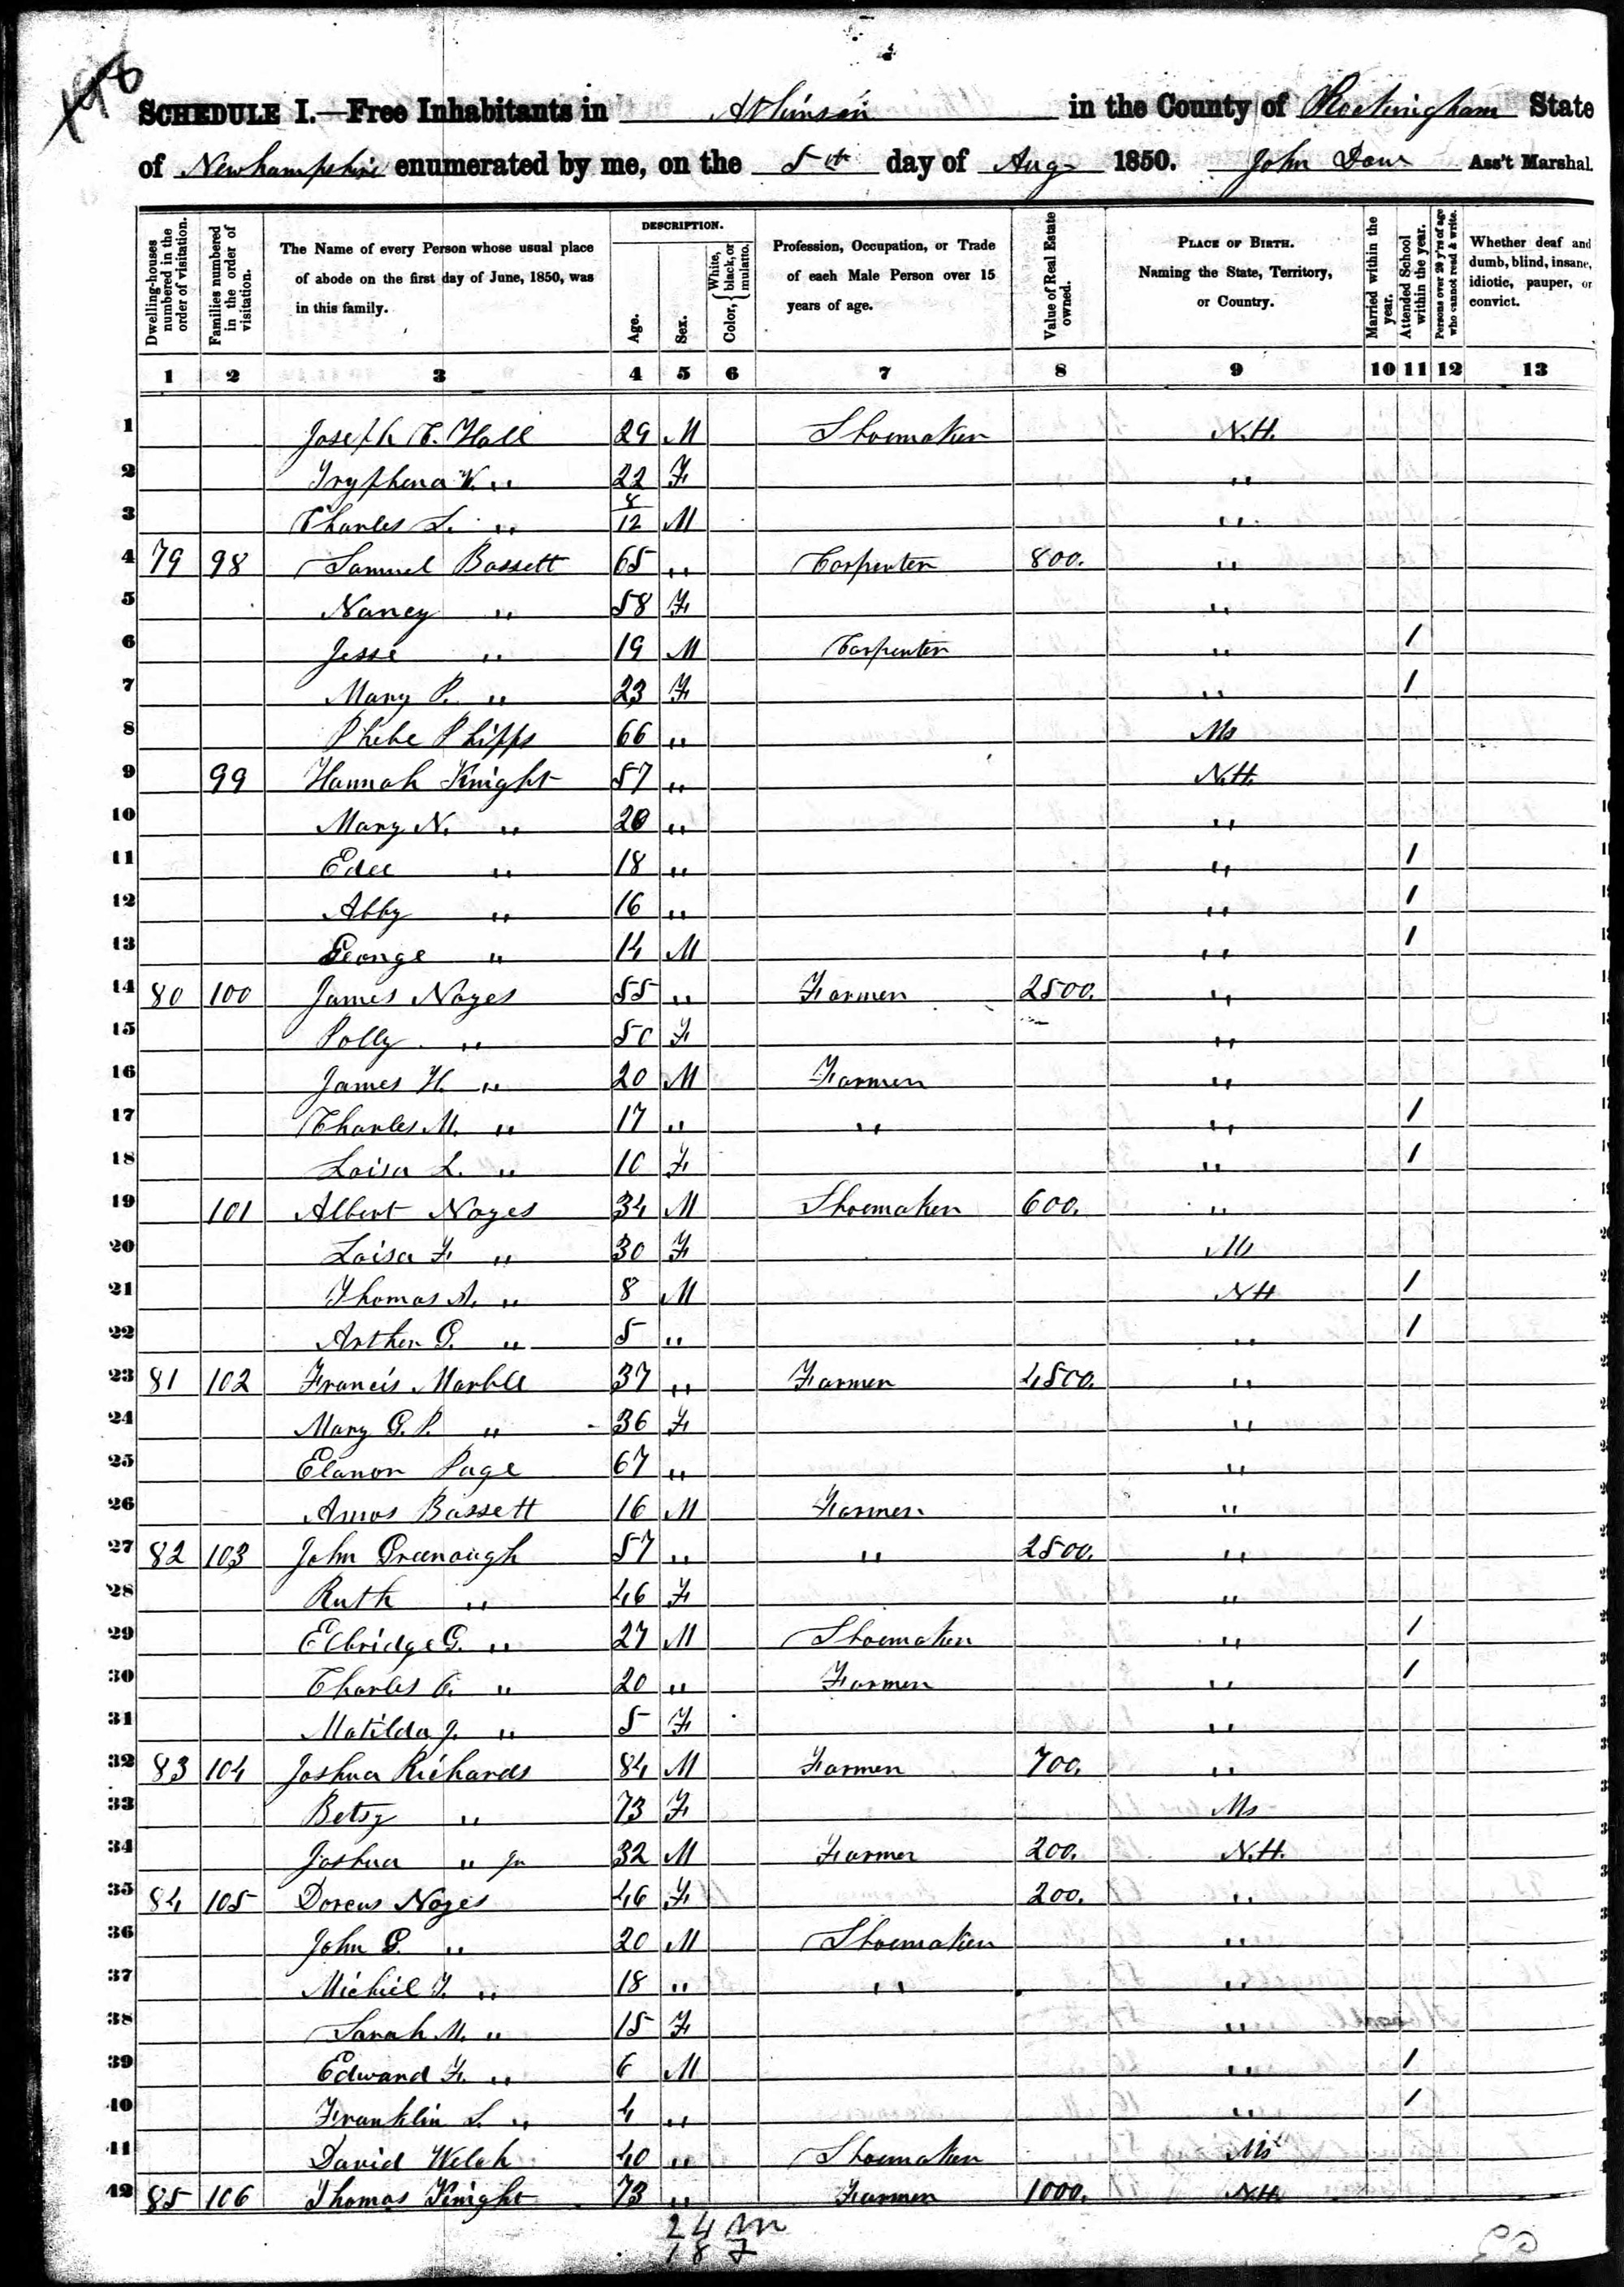 198
SCHEDULE I.—Free Inhabitants in Atkinson in the County of Rockingham State
of Newhampshire enumerated by me, on the 5th day of Aug 1850. John Dow Ass't Marshal.
Dwelling-houses numbered in the order of visitation.
Families numbered in the order of visitation.
The Name of every Person whose usual place of abode on the first day of June, 1850, was in this family.
DESCRIPTION.
Age.
Sex.
Color, { White, black, or mulatto.
Profession, Occupation, or Trade of each Male Person over 15 years of age.
Value of Real Estate owned.
PLACE OF BIRTH. Naming the State, Territory, or Country.
Married within the year.
Attended School within the year.
Persons over 20 y'rs of age who cannot read & write.
Whether deaf and dumb, blind, insane, idiotic, pauper, or convict.
1 2 3 4 5 6 7 8 9 10 11 12 13
1 Joseph C. Hall 29 M Shoemaker N.H.
2 Tryphena K. " 22 F "
3 Charles L. " 8/12 M "
4 79 98 Samuel Bassett 65 " Carpenter 800. "
5 Nancy " 58 F "
6 Jesse " 19 M Carpenter " 1
7 Mary P. " 23 F " 1
8 Phebe Phipps 66 " Ms
9 99 Hannah Knight 57 " N.H.
10 Mary N. " 20 " "
11 Edee " 18 " " 1
12 Abby " 16 " " 1
13 George " 14 M " 1
14 80 100 James Noyes 55 " Farmer 2500. "
15 Polly " 50 F "
16 James H. " 20 M Farmer "
17 Charles M. " 17 " " " 1
18 Loisa L. " 10 F " 1
19 101 Albert Noyes 34 M Shoemaker 600. "
20 Loisa F. " 30 F Ms
21 Thomas A. " 8 M NH 1
22 Arther G. " 5 " " 1
23 81 102 Francis Marble 37 " Farmer 4500. "
24 Mary G. P. " 36 F "
25 Elanor Page 67 " "
26 Amos Bassett 16 M Farmer "
27 82 103 John Greenough 57 " " 2500. "
28 Ruth " 46 F "
29 Elbridge G. " 27 M Shoemaker " 1
30 Charles C. " 20 " Farmer " 1
31 Matilda J. " 5 F "
32 83 104 Joshua Richards 84 M Farmer 700. "
33 Betsy " 73 F Ms
34 Joshua " Jr 32 M Farmer 200. N.H.
35 84 105 Dorcus Noyes 46 F 200. "
36 John G. " 20 M Shoemaker "
37 Michiel T. " 18 " " "
38 Sarah M. " 15 F "
39 Edward F. " 6 M " 1
40 Franklin S. " 4 " " 1
41 David Welch 40 " Shoemaker Ms
42 85 106 Thomas Knight 73 " Farmer 1000. N.H.
24 m
18 F